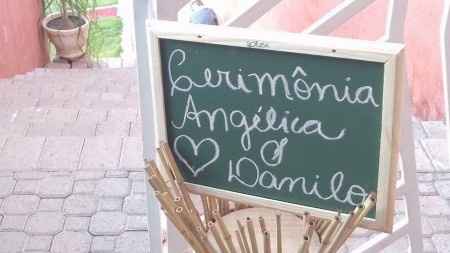 Cerimônia
Angélica
& Danilo